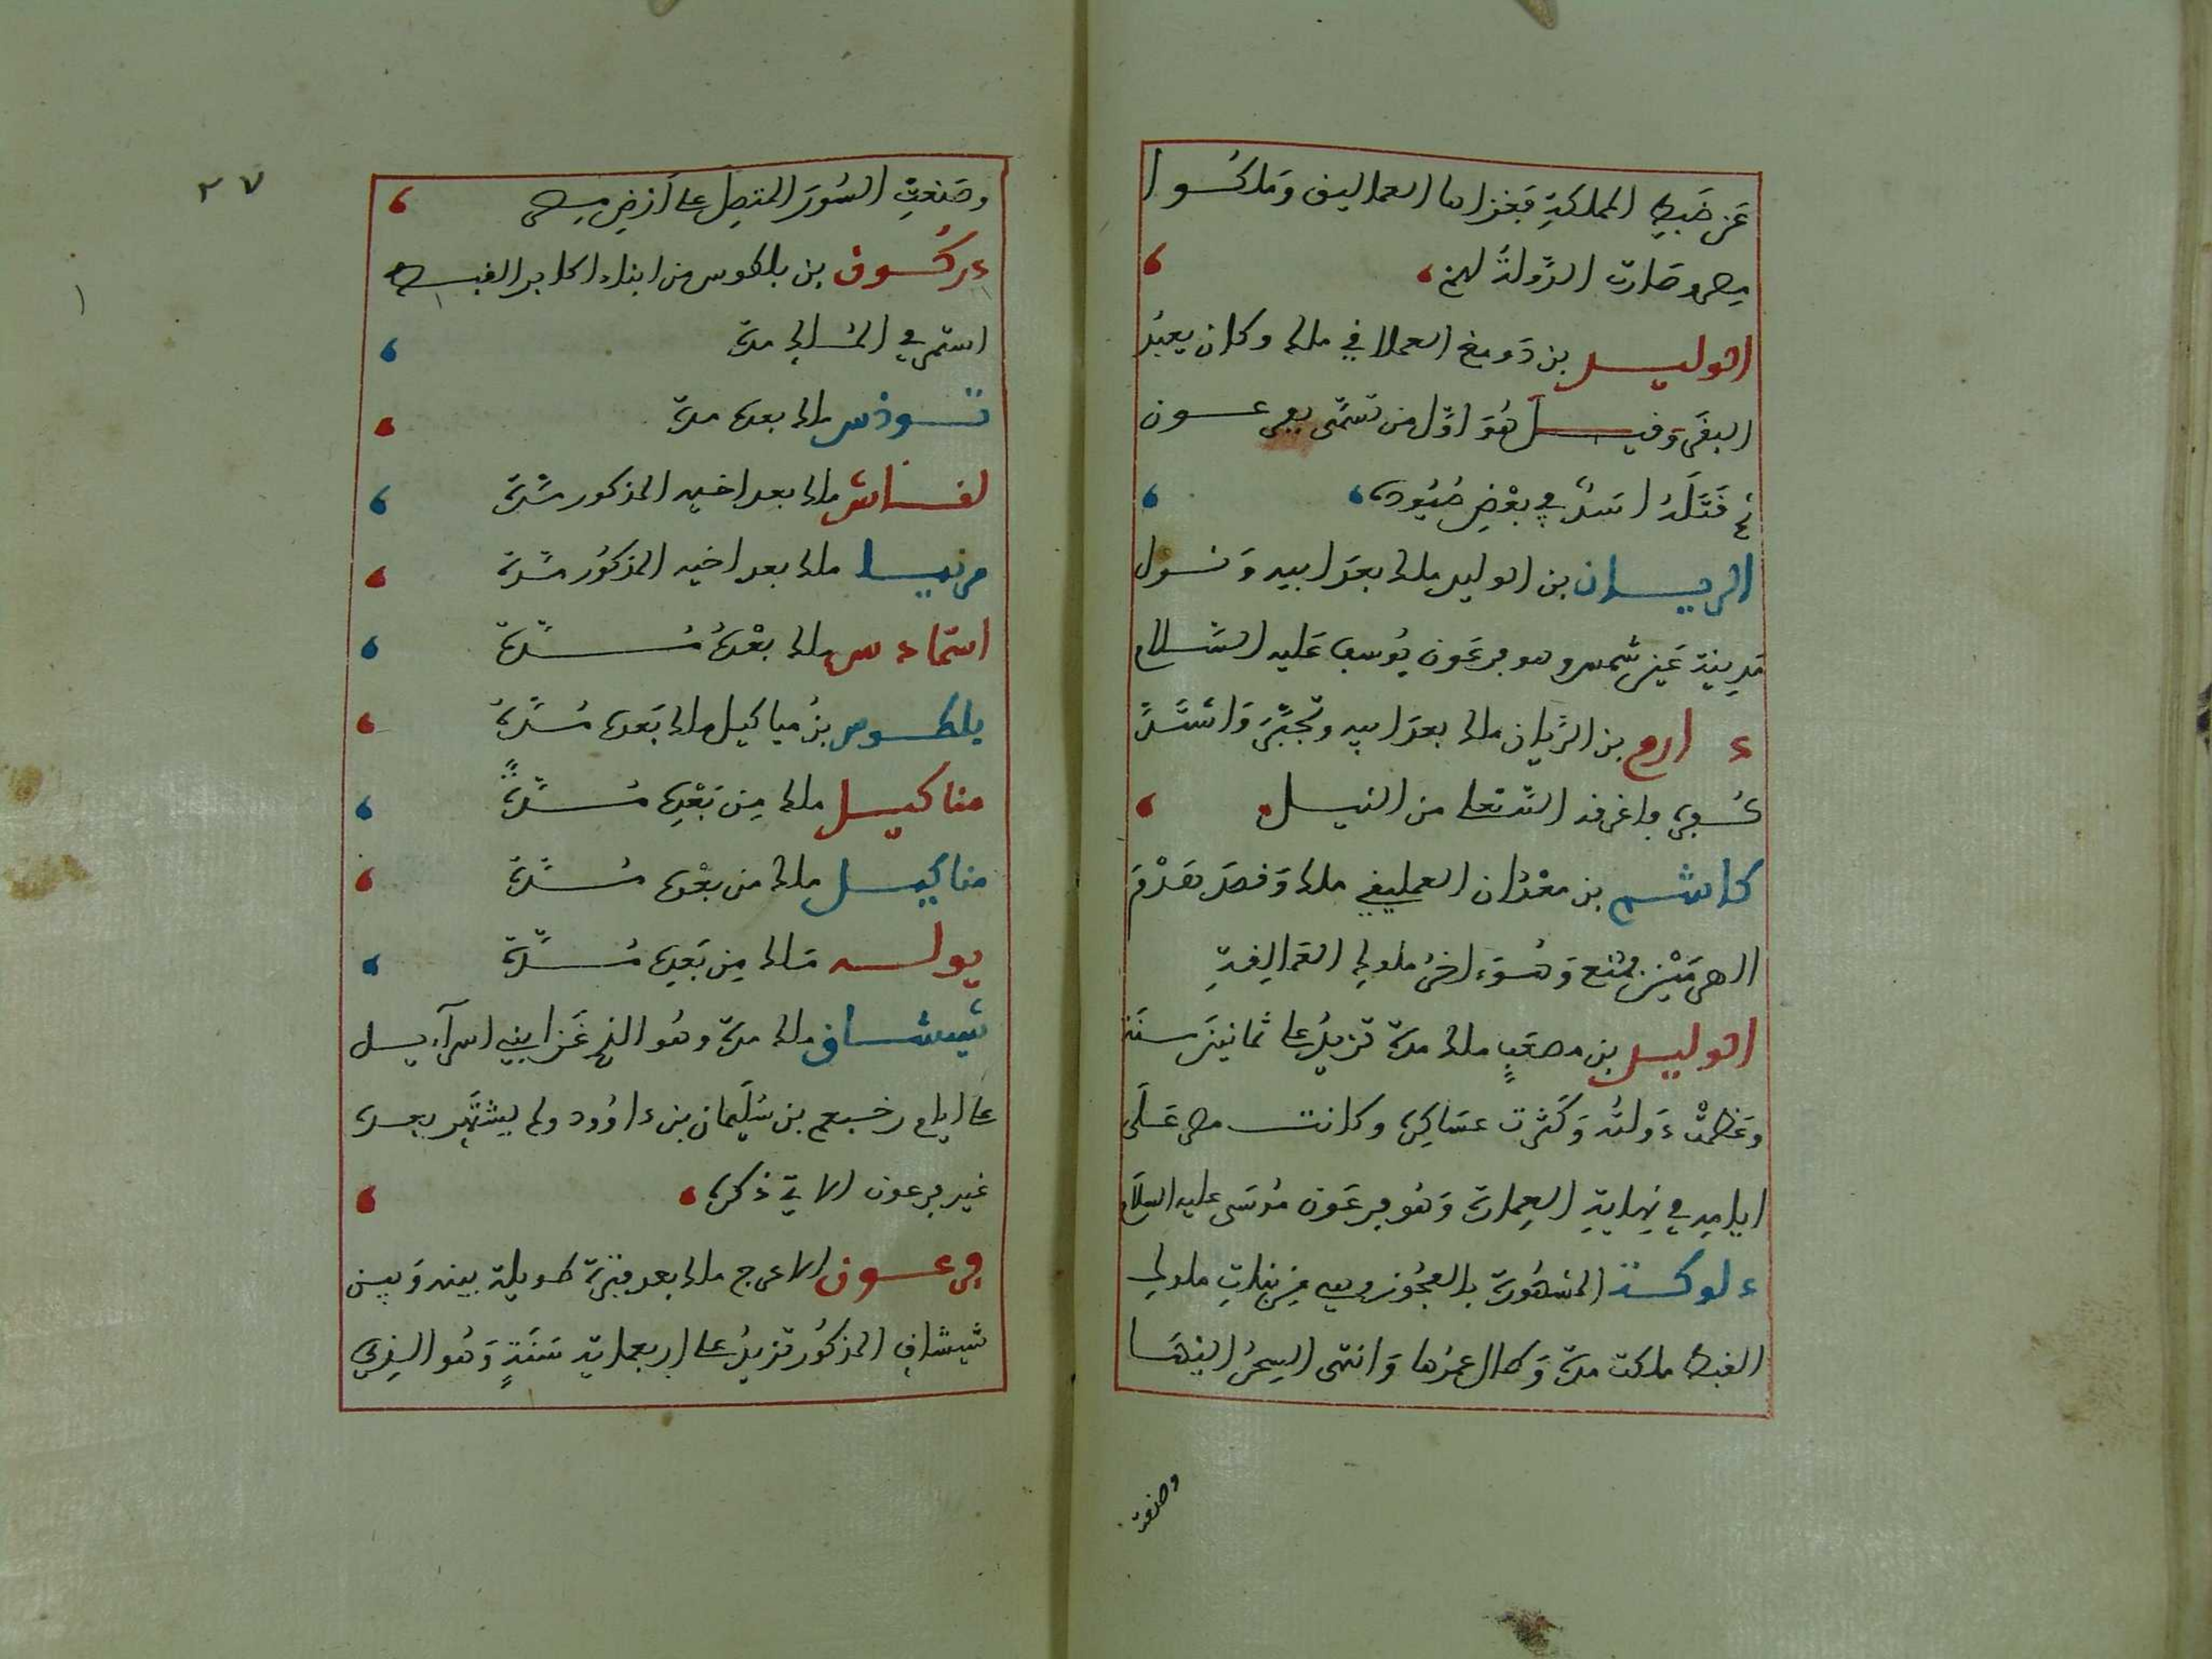 عَن ضَبطِ المملكةِ فَغزاها العماليق وَملكُوا
مصر وصَارت الدَّولةُ لهم،
الوليد بن دَومغ العملاقي ملك وكان يعبُد
البقَر وَقيل هُوَ اوَّل من تسَمَّى بفرعون
ثم قَتَلَهُ اسَدٌ في بعْضِ صُيُودِه،
الريان بن الوليد ملك بعدَ ابيه وَنزل
مَدِينة عَين شمس وهو فرعَون يُوسف عَليه السَّلام
دارم بن الرَّيان ملك بعدَ ابيه وتجبَّرَ وَاشتَدَّ
كُفره فاغرقه الله تعلى من النيل،
كاشم بن معْدَان العمليقي ملك وَقصَد بهَدْم
الهرمَيْن فمُنع وَهُوَ ءاخرُ ملوك العَمَالِقةِ
الوليد بن مصعَبٍ ملك مدة تزيدُ على ثمانينَ سنَة
وعَظمتْ دَولتُه وَكَثرت عسَاكِره وكانت مصر عَلَى
ايامِه في نِهايةِ العِمارة وَهُو فرعَون مُوسَى عليه السلام
دلوكة المشهُورة بالعجُوز وهي مِن بنَاتِ ملوك
القبط ملكت مدة وَطال عمرُها وَانتهى السِحرُ اليهَا
وصنعت
٢٧
وصَنعتِ السُورَ المتصِل على أرْضِ مصر،
دركُون بن بلطوس من ابناء اكابر القبط
استمر في المُلك مدة،
تودس ملك بعده مدة،
لقاش ملك بعد اخيه المذكور مُدة،
مرنيا ملك بعد اخيه المذكُور مُدة،
استمادس ملك بعْدَهُ مُدةً،
بلطوس بنُ مياكيل ملك بَعدَه مُدةً،
مناكيل ملك مِن بَعْدِه مُدةً،
مناكيل ملك من بعْده مُدةً،
يوله مَلك مِن بَعدِه مُدةً،
شيشاق ملك مدة وهُو الذي غَزا بني اسرآءيل
على ايام رخبعم بن سُلَيمان بن داوُود ولم يشتهَر بعده
غير فرعون الاتي ذكره،
فرعون الاعرج ملك بعد فترة طويلة بينه وَبين
شيشاق المذكُور تزيدُ على اربعماية سَنَةٍ وَهُو الذِي